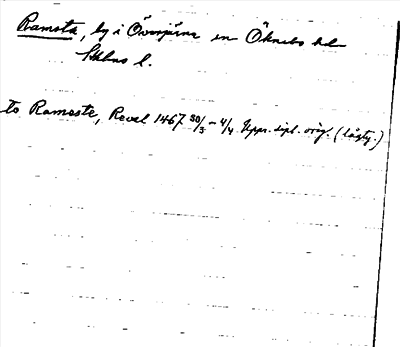 Ramsta, by i Överjärna sn Öknebo hd
Sthlms l.
to Ramaste, Reval 1467 30/3 – 4/4 Uppr. dipl. orig. (lågty.)